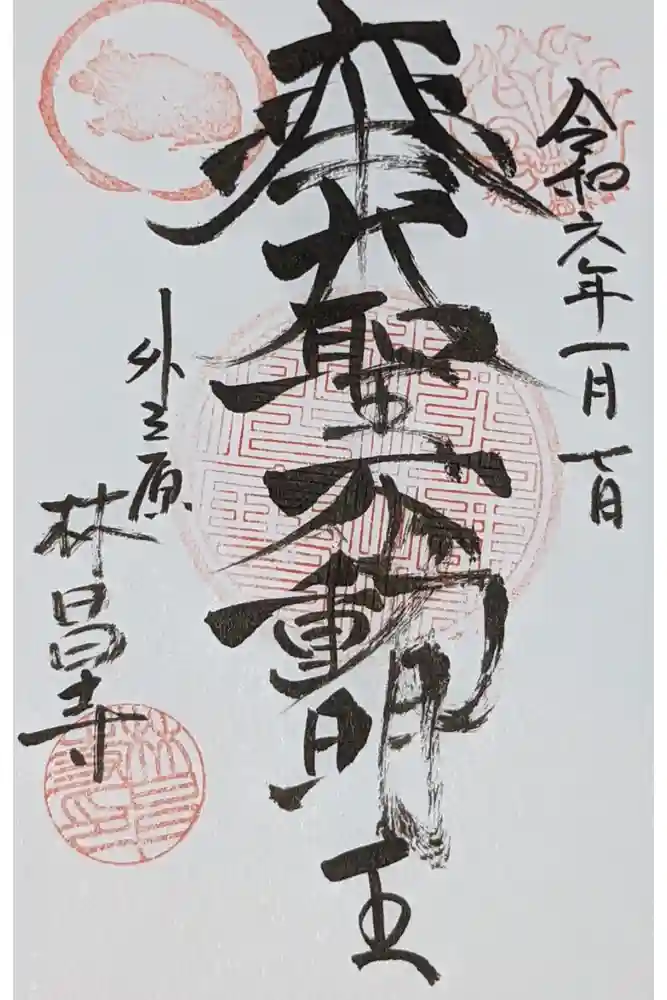 令和六年一月七日
奉大聖不動明王
外之原
林昌寺